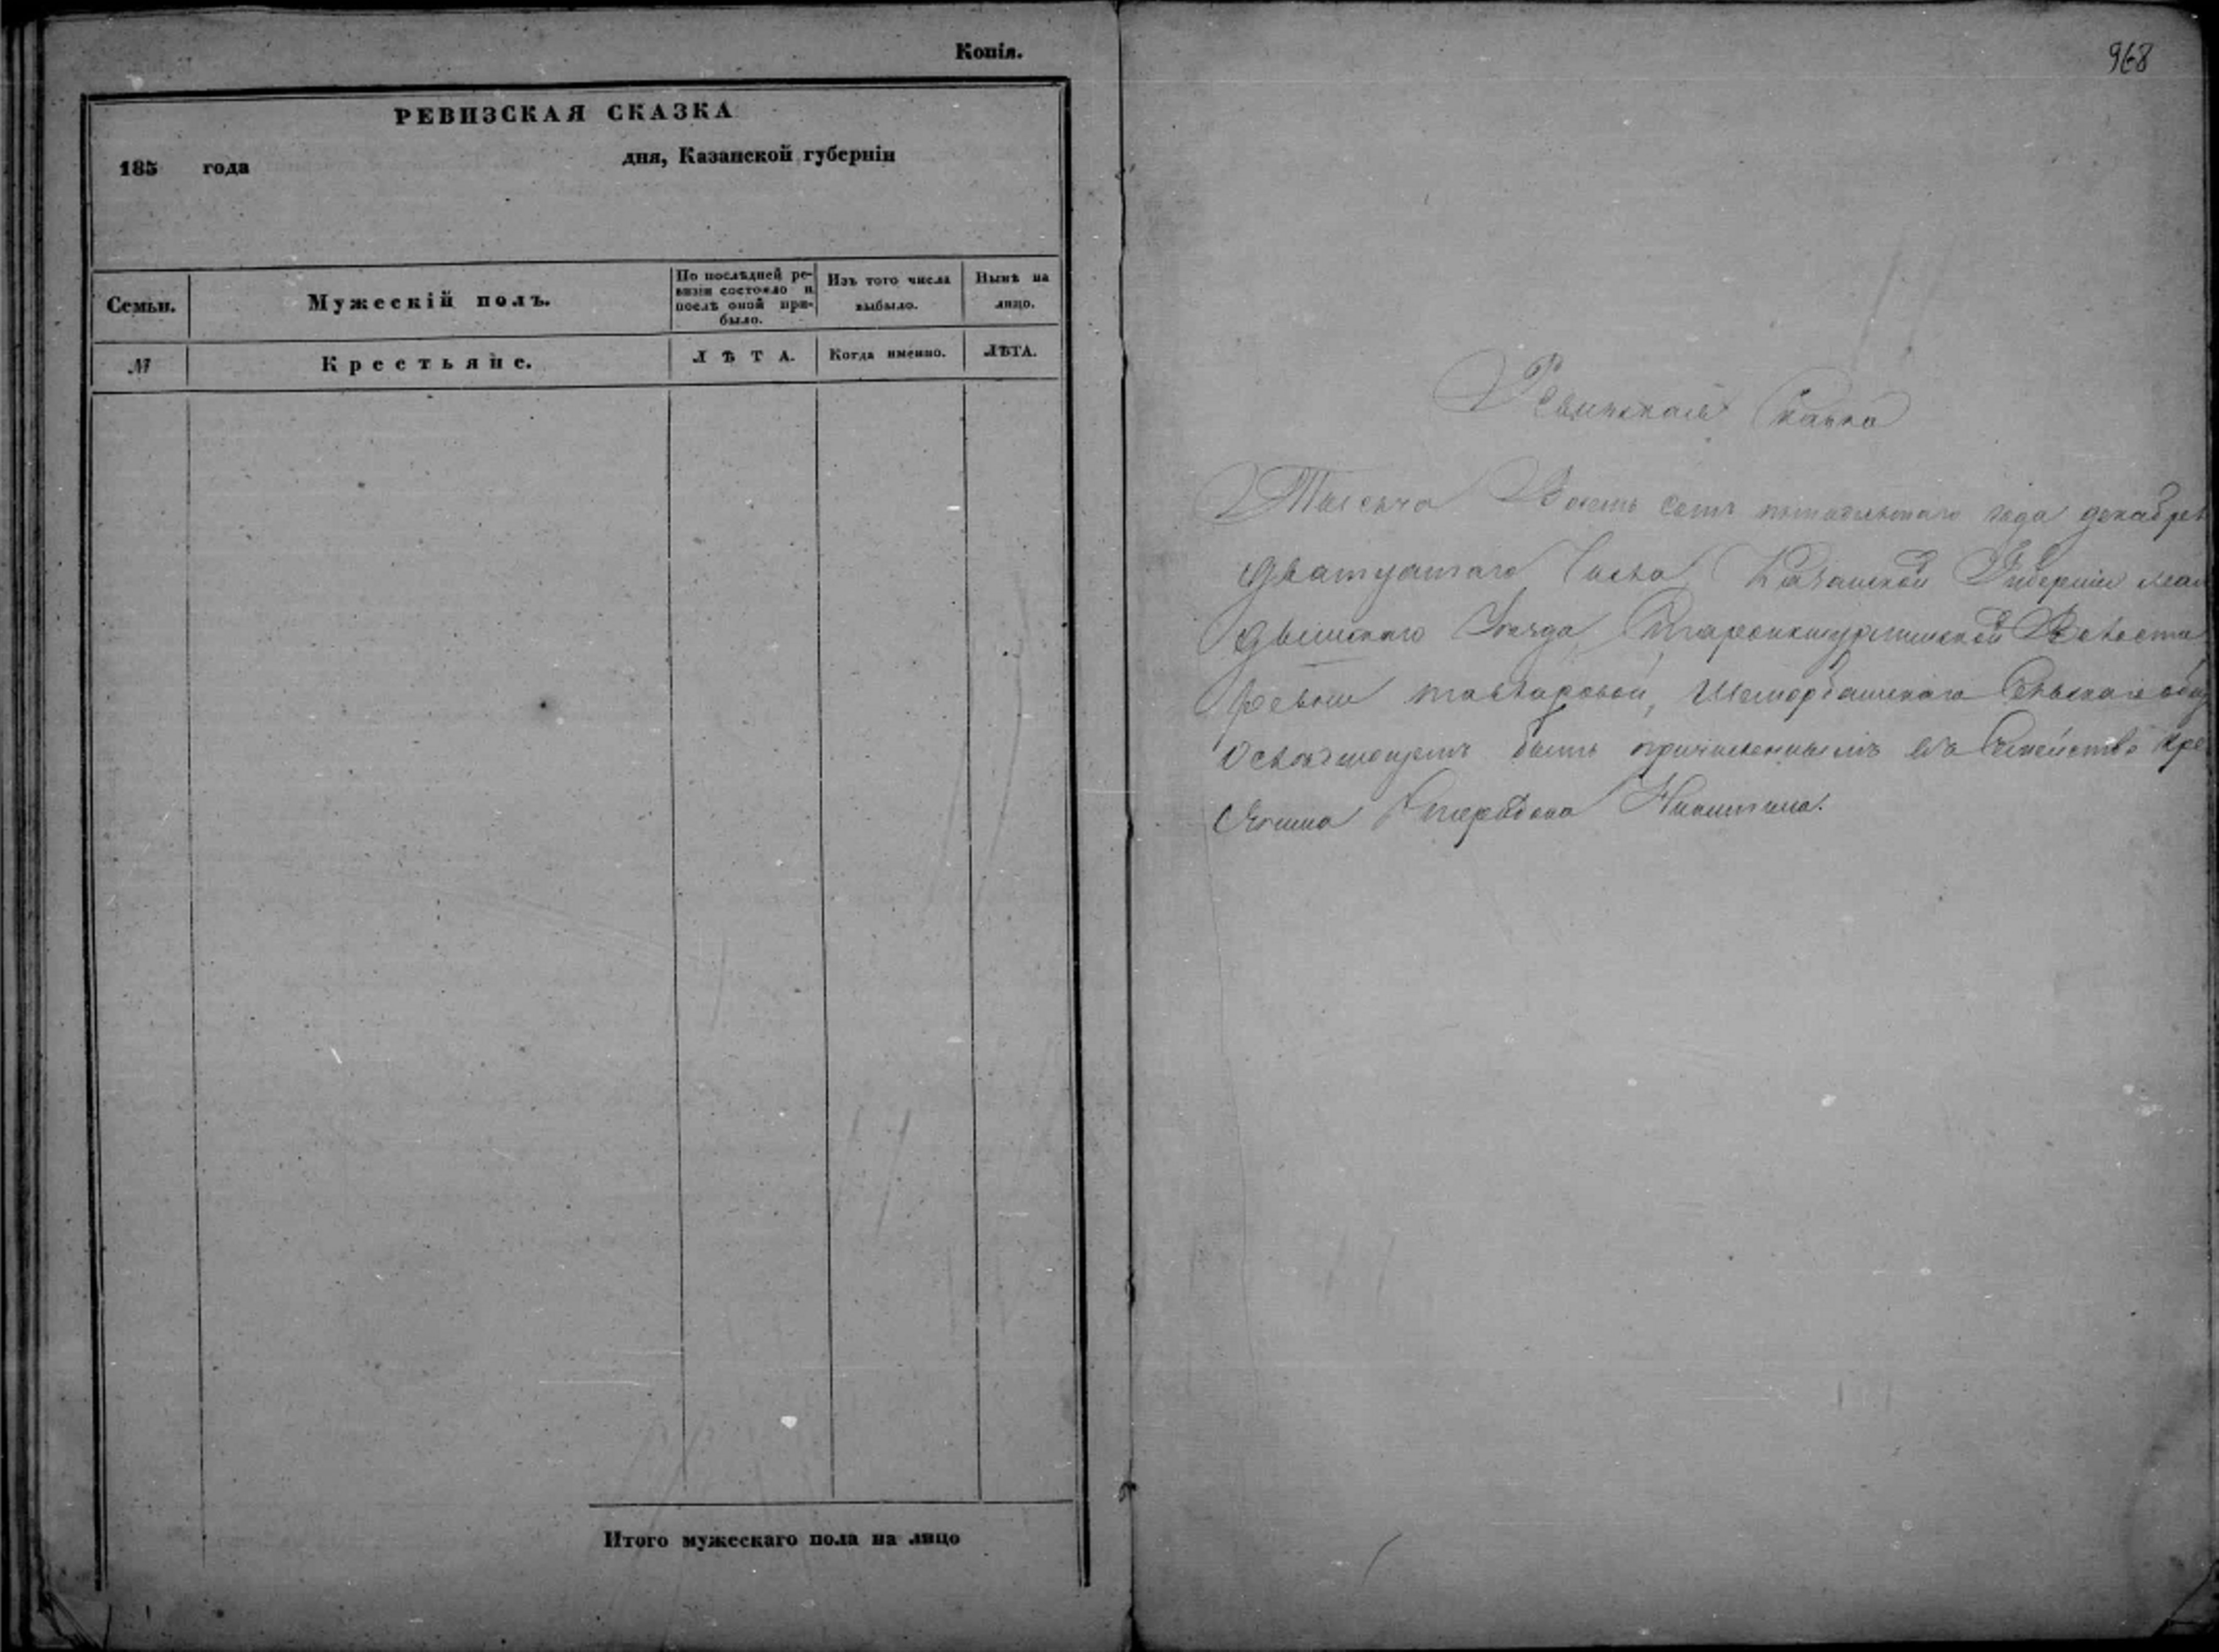 Копія.
РЕВИЗСКАЯ СКАЗКА
185 года дня, Казанской губерніи
Семьи.
Мужескій полъ.
По послѣдней ре-
визіи состояло и
послѣ оной при-
было.
Изъ того числа
выбыло.
Нынѣ на
лицо.
№
Крестьяне.
ЛѢТА.
Когда именно.
ЛѢТА.
Итого мужескаго пола на лицо
968
Ревизская Сказка
Тысеча Восемь сотъ пятьдесятаго года декабря
Дватцатаго Числа Казанской Губерніи мам
дышского Уезда
Сельскаго
быть причисленнымъ въ Семейство кре
Никитина.